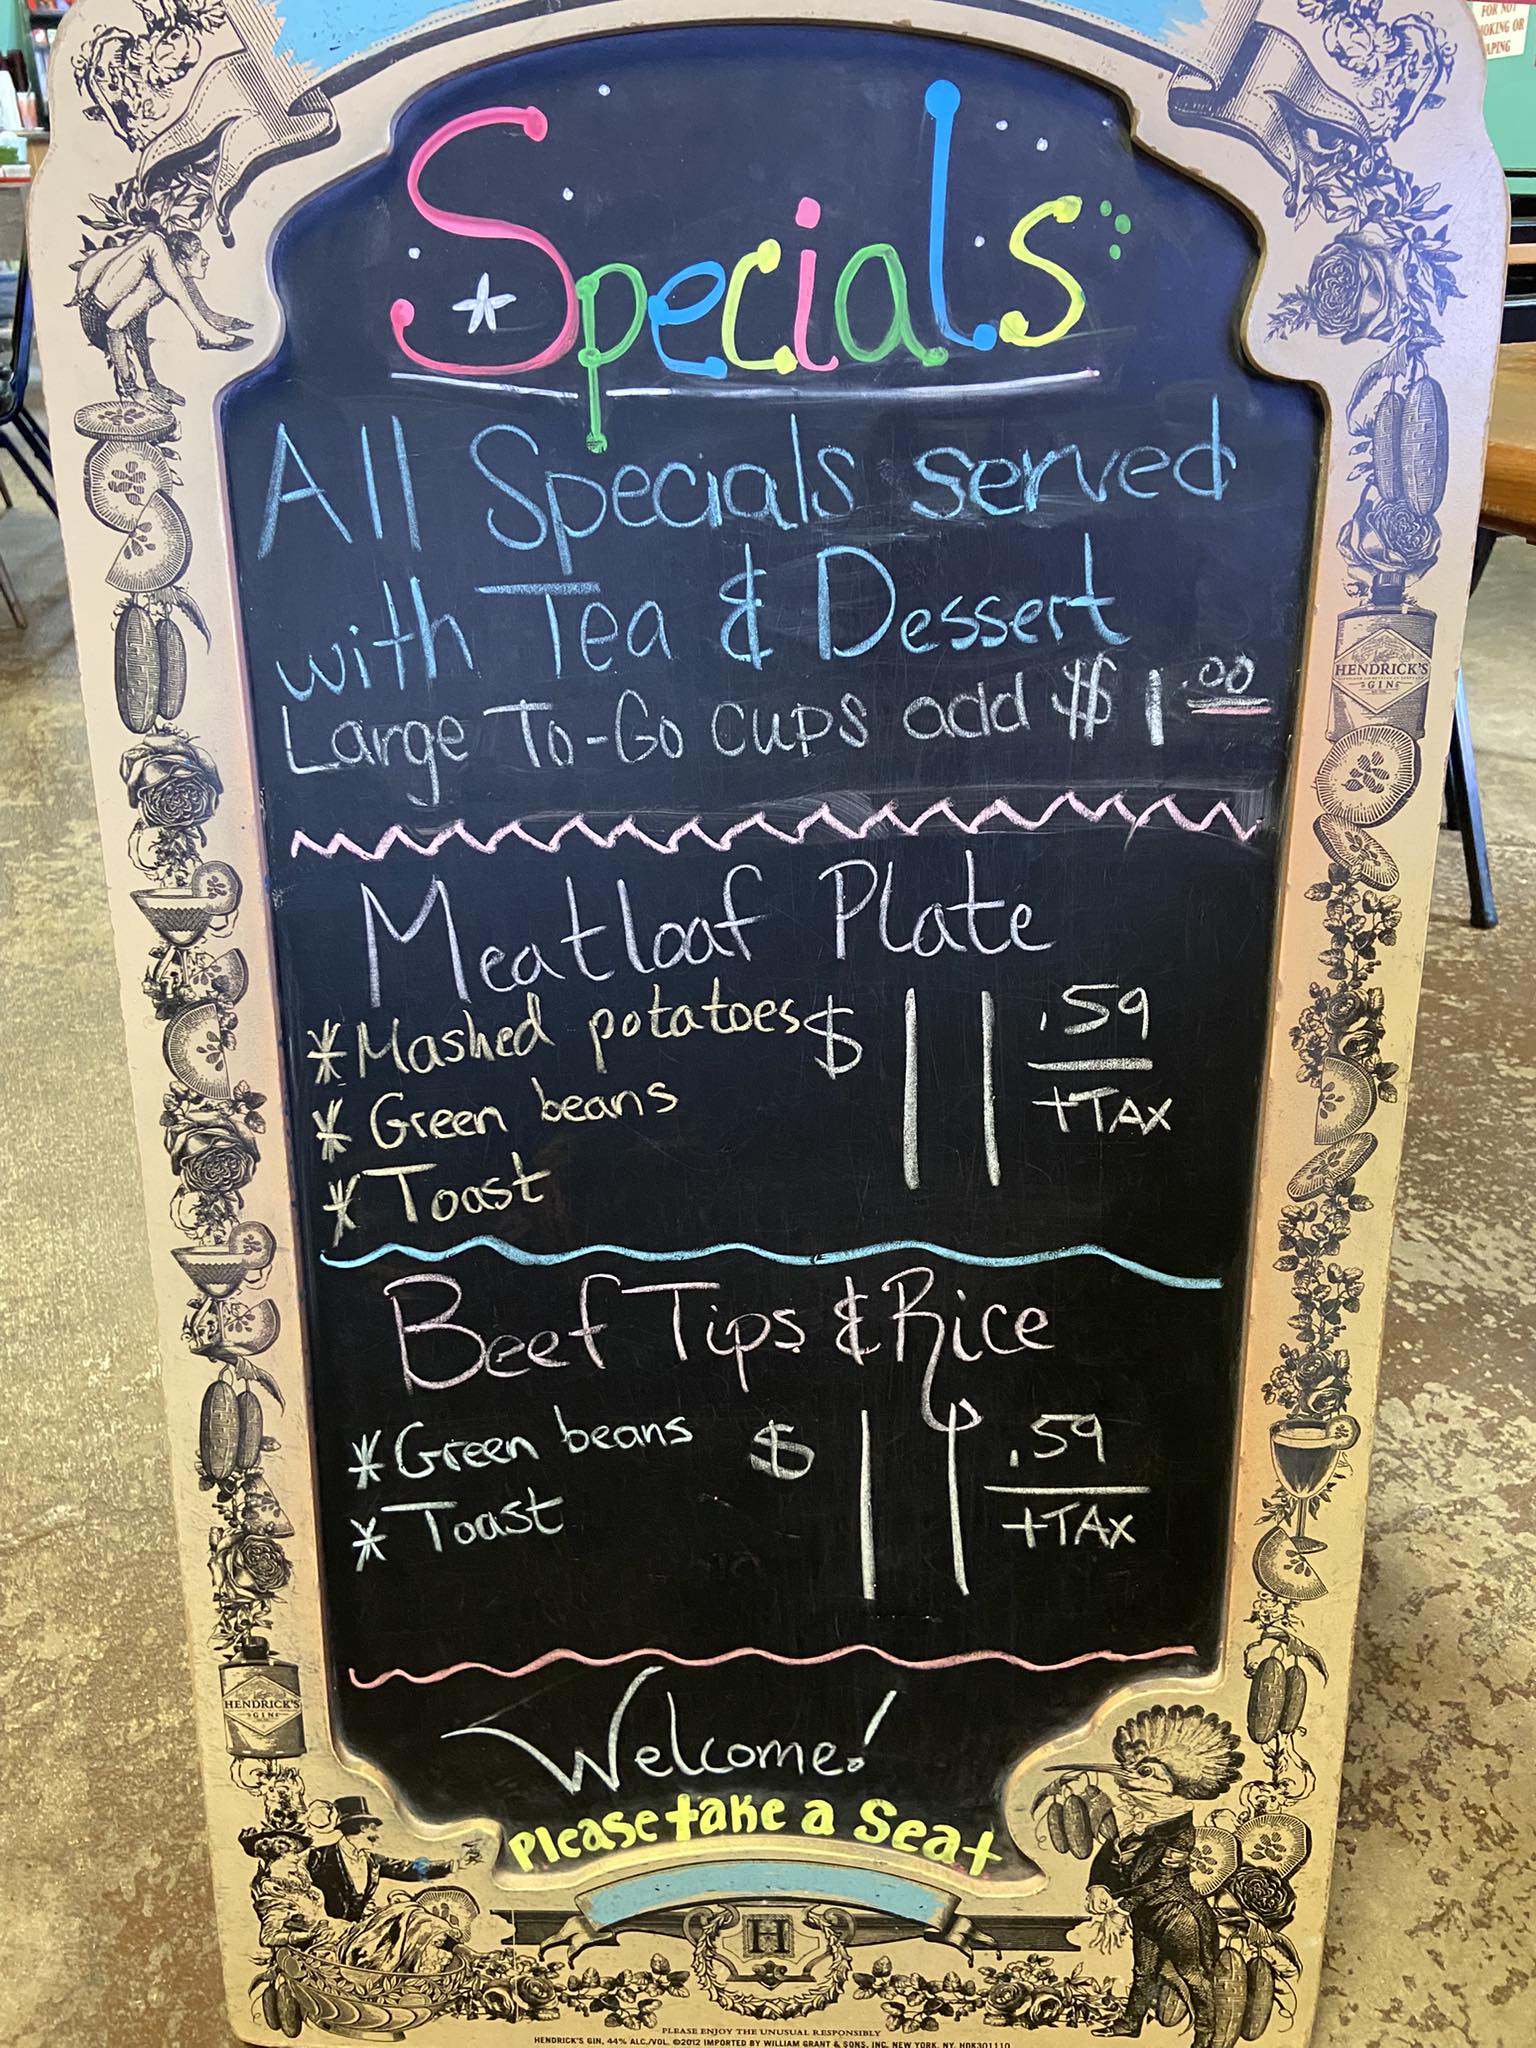 FOR NOT
OKING OR
APING
Specials
All Specials served
with Tea & Dessert
Large To-Go cups add $1.00
Meatloaf Plate
*Mashed potatoes $11.59
*Green beans +TAX
*Toast
Beef Tips & Rice
*Green beans $11.59
*Toast +TAX
Welcome!
Please take a Seat
HENDRICK'S
GIN
HENDRICK'S
GIN
H
PLEASE ENJOY THE UNUSUAL RESPONSIBLY
HENDRICK'S GIN, 44% ALC./VOL. ©2012 IMPORTED BY WILLIAM GRANT & SONS, INC. NEW YORK, NY. HDK301110